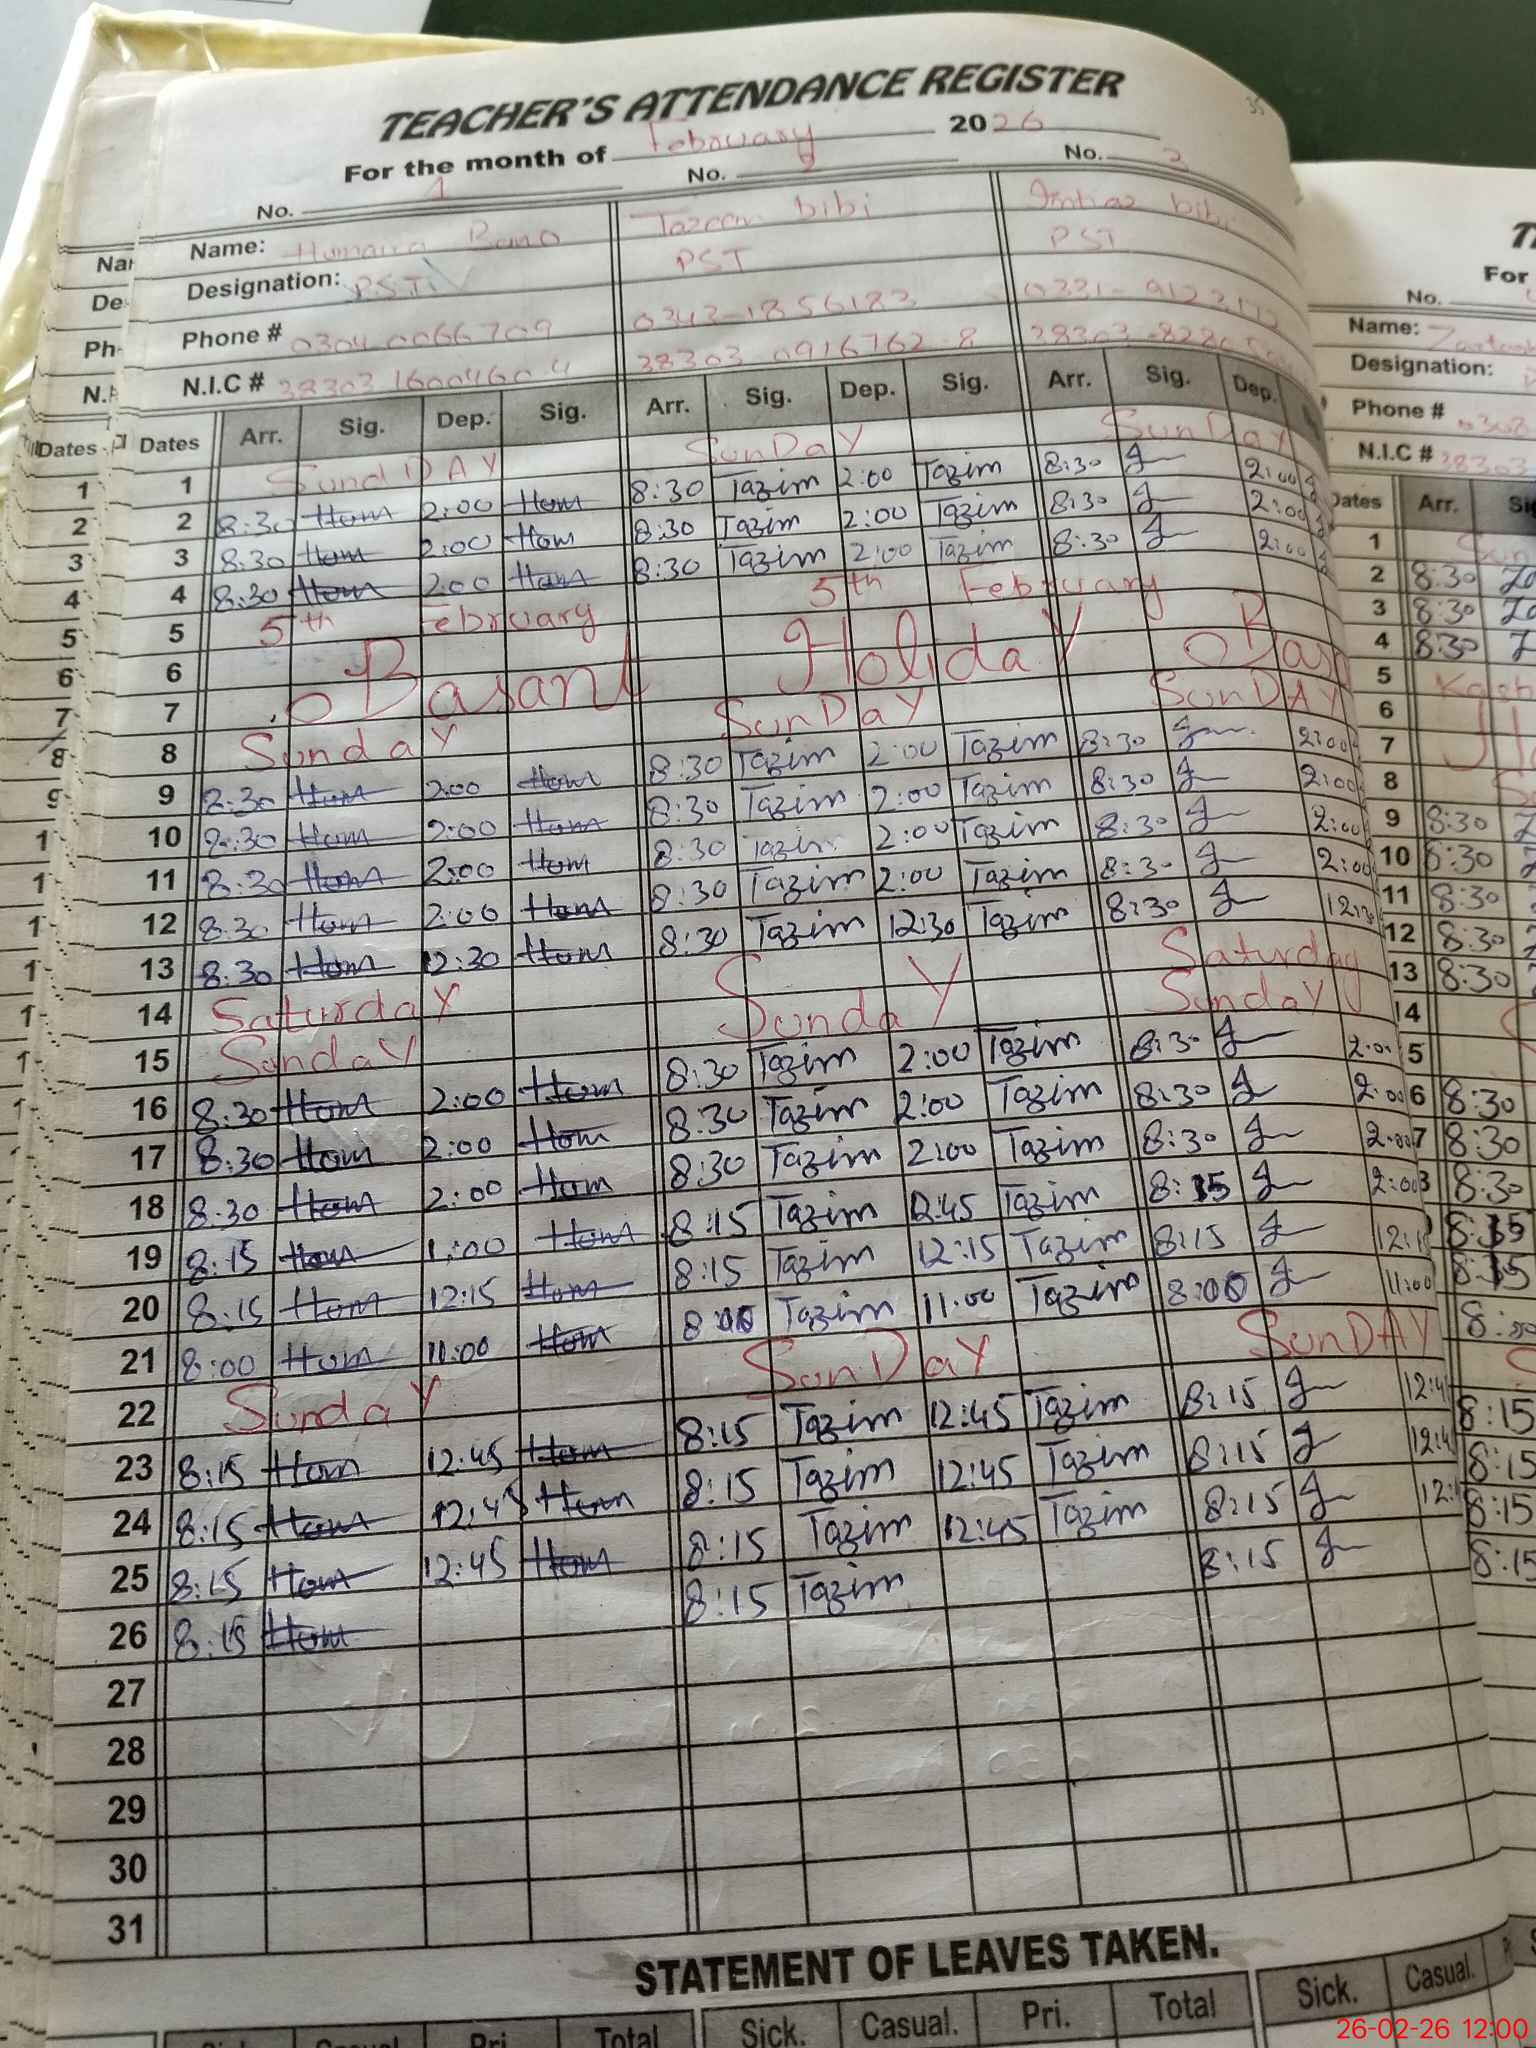 TEACHER'S ATTENDANCE REGISTER
For the month of February 2026
No. 1 No. 2 No. 3
Name: Humaira Bano Tazeem bibi Imtiaz bibi
Designation: PST PST PST
Phone # 0304-0066709 0343-1856183
N.I.C # 38303 1600460 4 38303-0916762-8
Dates Arr. Sig. Dep. Sig. Arr. Sig. Dep. Sig. Arr. Sig. Dep.
1 SunDAY SunDaY SunDaY
2 8:30 Hom 2:00 Hom 8:30 Tazim 2:00 Tazim 8:30 2:00
3 8:30 Hom 2:00 Hom 8:30 Tazim 2:00 Tazim 8:30 2:00
4 8:30 Hom 2:00 Hom 8:30 Tazim 2:00 Tazim 8:30 2:00
5 5th February 5th February
6 Basant HolidaY
7
8 SundaY SunDaY SunDAY
9 8:30 Hom 2:00 Hom 8:30 Tazim 2:00 Tazim 8:30 2:00
10 8:30 Hom 2:00 Hom 8:30 Tazim 2:00 Tazim 8:30 2:00
11 8:30 Hom 2:00 Hom 8:30 Tazim 2:00 Tazim 8:30 2:00
12 8:30 Hom 2:00 Hom 8:30 Tazim 2:00 Tazim 8:30 2:00
13 8:30 Hom 12:30 Hom 8:30 Tazim 12:30 Tazim 8:30
14 SaturdaY Saturday
15 SundaY SundaY SundaY
16 8:30 Hom 2:00 Hom 8:30 Tazim 2:00 Tazim 8:30 2:00
17 8:30 Hom 2:00 Hom 8:30 Tazim 2:00 Tazim 8:30 2:00
18 8:30 Hom 2:00 Hom 8:30 Tazim 2:00 Tazim 8:30 2:00
19 8:15 Hom 1:00 Hom 8:15 Tazim 12:45 Tazim 8:15 2:00
20 8:15 Hom 12:15 Hom 8:15 Tazim 12:15 Tazim 8:15
21 8:00 Hom 11:00 Hom 8:00 Tazim 11:00 Tazim 8:00 11:00
22 SundaY SunDaY SunDAY
23 8:15 Hom 12:45 Hom 8:15 Tazim 12:45 Tazim 8:15
24 8:15 Hom 12:45 Hom 8:15 Tazim 12:45 Tazim 8:15
25 8:15 Hom 12:45 Hom 8:15 Tazim 12:45 Tazim 8:15
26 8:15 Hom 8:15 Tazim 8:15
27
28
29
30
31
STATEMENT OF LEAVES TAKEN.
Total Sick. Casual. Pri. Total Sick. Casual.
26-02-26 12:00
For
No.
Name:
Designation:
Phone #
N.I.C #
Arr.
1
2 8:30
3 8:30
4 8:30
5
6
7
8
9 8:30
10 8:30
11 8:30
12 8:30
13 8:30
8:30
8:30
8:30
8:15
8:15
8:15
8:15
8:15
8:15